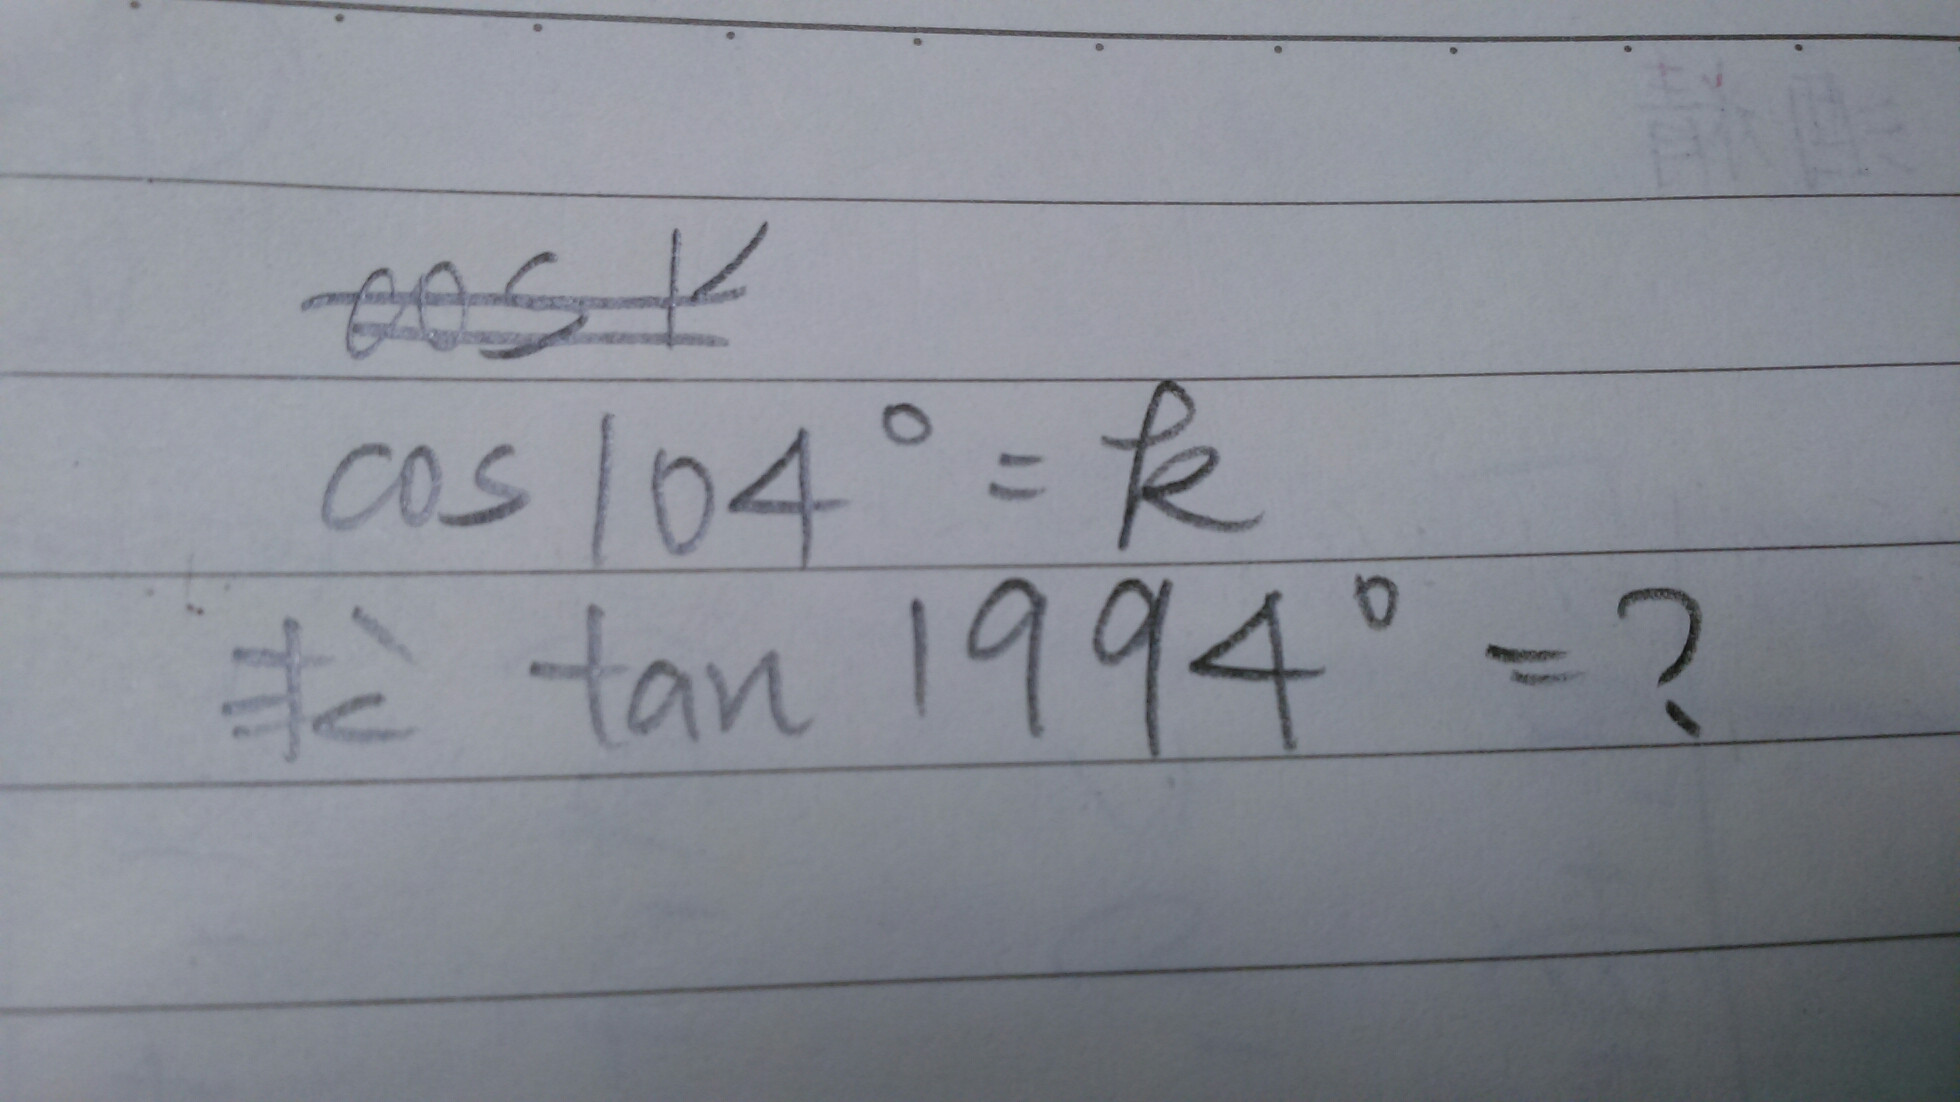 cos k
cos 104° = k
求 tan 1994° = ?